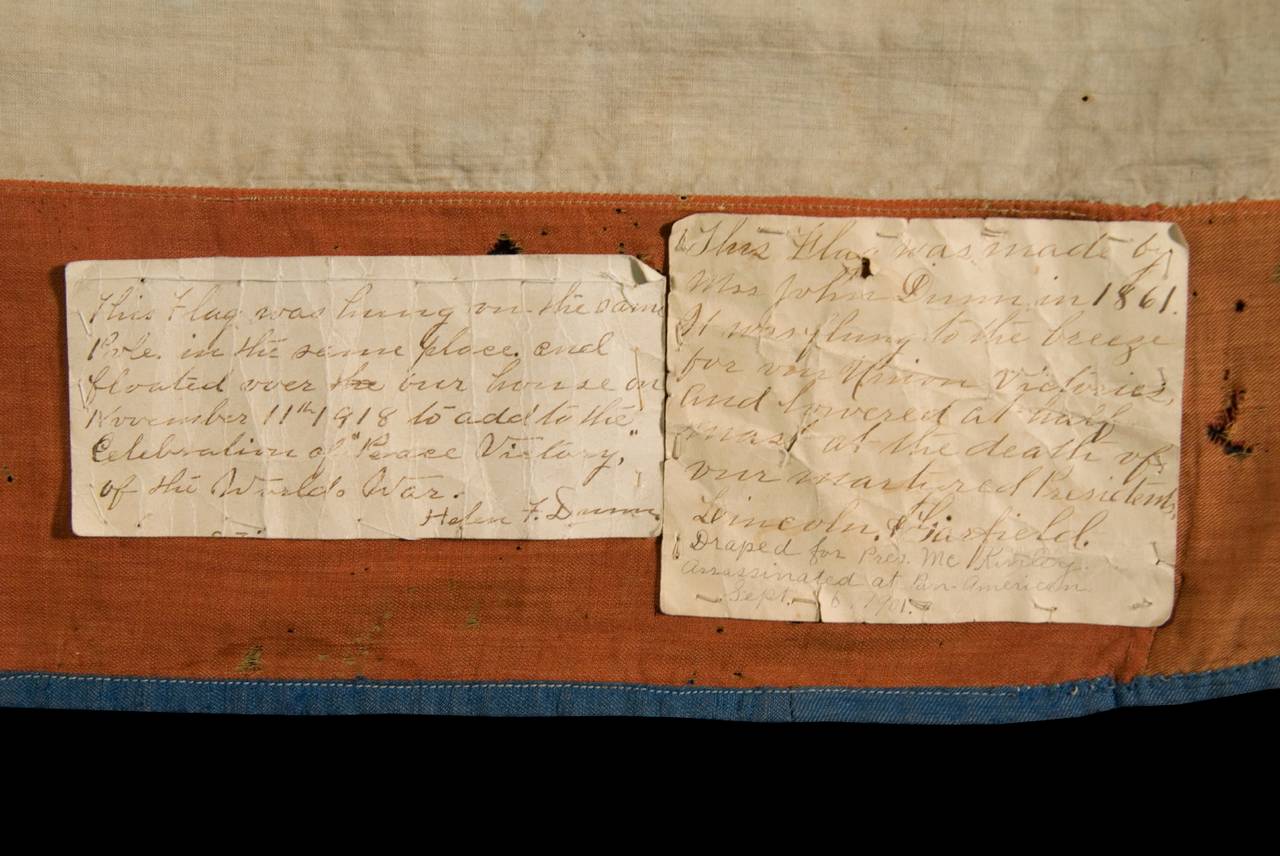 This Flag was hung on the same
Pole. in the same place. and
floated over the our house on
November 11th 1918 to add to the
Celebration of "Peace Victory,"
of the Worlds War.
Helen F. Dunn.
This Flag was made by
Mrs John Dunn in 1861.
It was flung to the breeze
for our Union Victories,
and lowered at half
mast at the death of
our martyred Presidents,
Lincoln. & Garfield.
Draped for Pres. Mc Kinley.
Assassinated at Pan-American
Sept. 6, 1901.